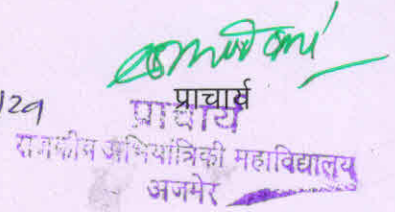 129
प्राचार्य
प्राचार्य
राजकीय अभियांत्रिकी महाविद्यालय
अजमेर